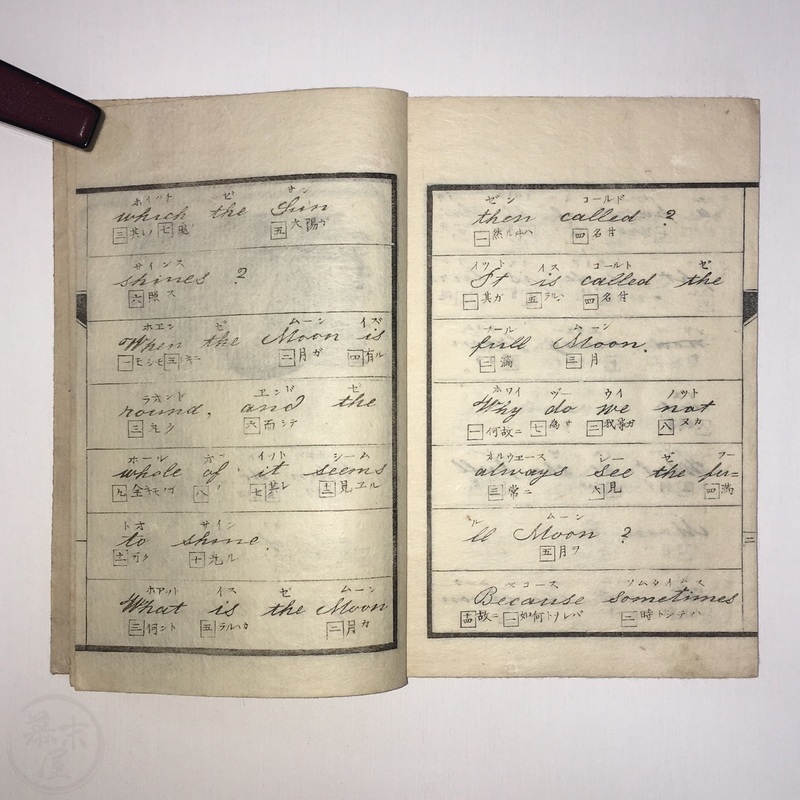 ホイット ゼ サン
which the Sun
三 其レ 七 處ノ 五 大陽ガ
サインス
shines ?
六 照ス
ホエン ゼ ムーン イズ
When the Moon is
一 モシモ 五 二 月ガ 四 有ル
ラオンド エンド ゼ
round, and the
三 六 而シテ
ホール オー イット シーム
whole of it seems
九 八 七 其レ 十二 見エル
トオ サイン
to shine.
十一 十 光ル
ホアット イス ゼ ムーン
What is the Moon
三 何ント 五 二 月ガ
ゼン コールド
then called ?
一 然ルキハ 四 名付
イット イス コールト ゼ
It is called the
一 其ガ 五 ラル 四 名付
フール ムーン
full Moon.
二 満 三 月
ホワイ ヅー ウイ ノット
Why do we not
一 何故ニ 七 為サ 二 我等ガ 八 ヌカ
オルウエース シー ゼ フー
always see the fu=
三 常ニ 六 見 四 満
ル ムーン
ll Moon ?
五 月ヲ
ベコース ソムタイムス
Because sometimes
十四 故ニ 一 如何トナレバ 二 時トシテハ
二